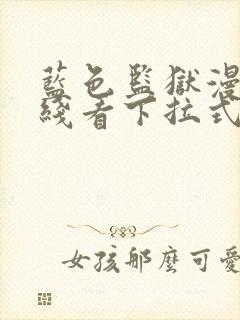 藍色監獄漫
綫看下拉式
女孩那麼可愛